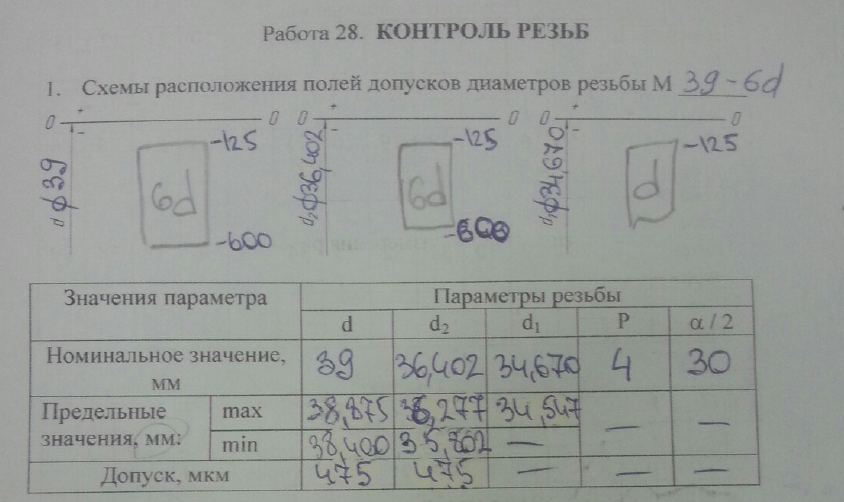 Работа 28. КОНТРОЛЬ РЕЗЬБ
1. Схемы расположения полей допусков диаметров резьбы М 39-6d
0 + 0 0 + 0 0 + 0
- - -
d ϕ39 6d -125 -600
d₂ ϕ36,402 6d -125 -600
d₁ ϕ34,670 d -125
Значения параметра Параметры резьбы
d d₂ d₁ P α / 2
Номинальное значение, мм 39 36,402 34,670 4 30
Предельные значения, мм: max 38,875 36,277 34,547 — —
min 38,400 35,802 —
Допуск, мкм 475 475 — — —